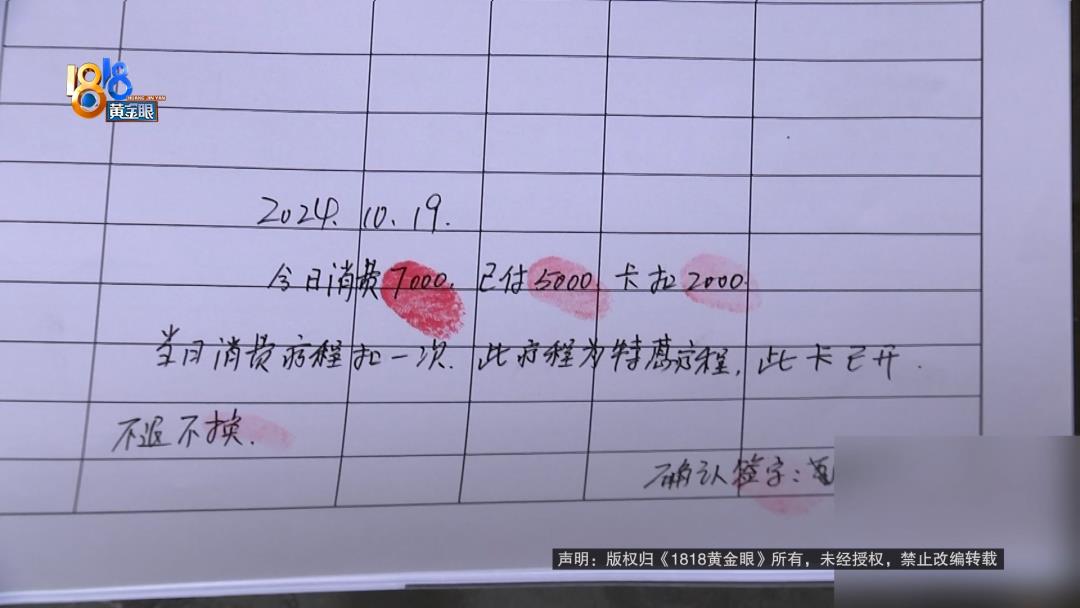 1818
HUANG JIN YAN
黄金眼
2024.10.19.
今日消费7000. 已付5000 卡扣2000.
当日消费疗程扣一次. 此疗程为特惠疗程, 此卡已开.
不退不换.
确认签字:
声明：版权归《1818黄金眼》所有，未经授权，禁止改编转载